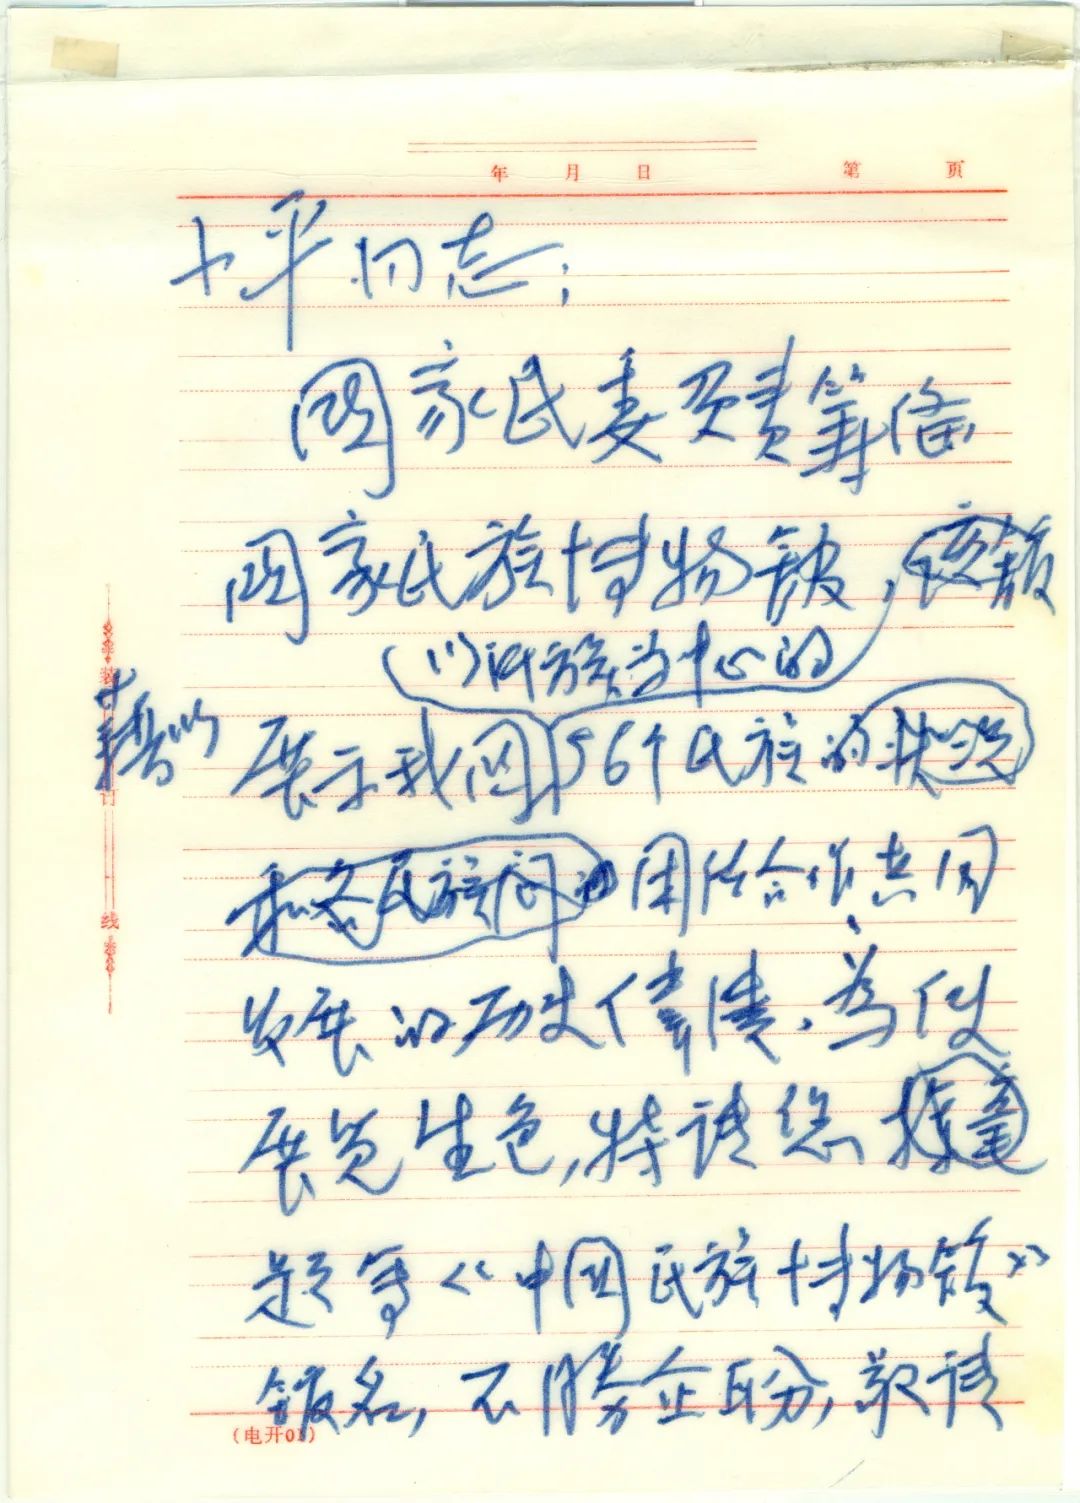 年 月 日 第 页
小平同志：
国家民委负责筹备
国家民族博物馆，该馆
以汉族为中心的
展示我国56个民族的状况
和各民族间的团结合作共同
发展的历史
为使
展览生色，特请您挥毫
题写《中国民族博物馆》
馆名，不胜企盼，敬请
装
订
线
(电开03)